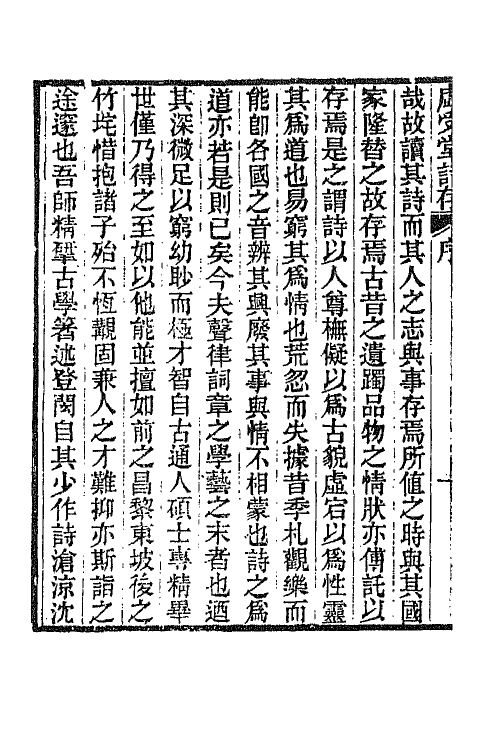 虛受堂詩存 序
哉故讀其詩而其人之志與事存焉所值之時與其國
家隆替之故存焉古昔之遺躅品物之情狀亦傳託以
存焉是之謂詩以人尊橅儗以爲古貌虛宕以爲性靈
其爲道也易窮其爲情也荒忽而失據昔季札觀樂而
能卽各國之音辨其興廢其事與情不相蒙也詩之爲
道亦若是則已矣今夫聲律詞章之學藝之末者也迺
其深微足以窮幼眇而極才智自古通人碩士專精畢
世僅乃得之至如以他能並擅如前之昌黎東坡後之
竹垞惜抱諸子殆不恆覯固兼人之才難抑亦斯詣之
途邃也吾師精揅古學箸述登閎自其少作詩滄涼沈